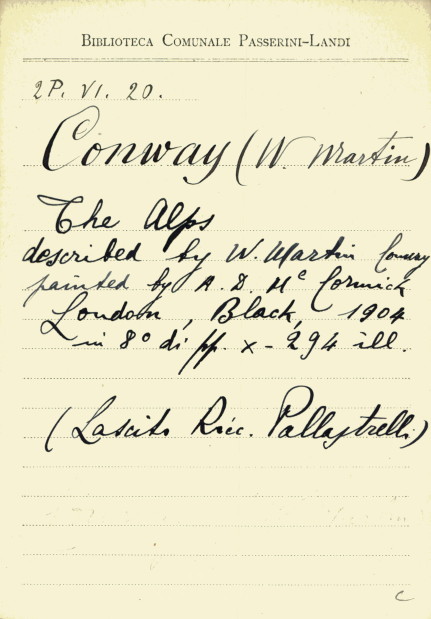 BIBLIOTECA COMUNALE PASSERINI-LANDI
2P. VI. 20.
Conway (W. Martin)
The Alps
described by W. Martin Conway
painted by A. D. Mc Cormick
London, Black, 1904
in 8° di pp. x - 294 ill.
(Lascito Ricc. Pallastrelli)
c